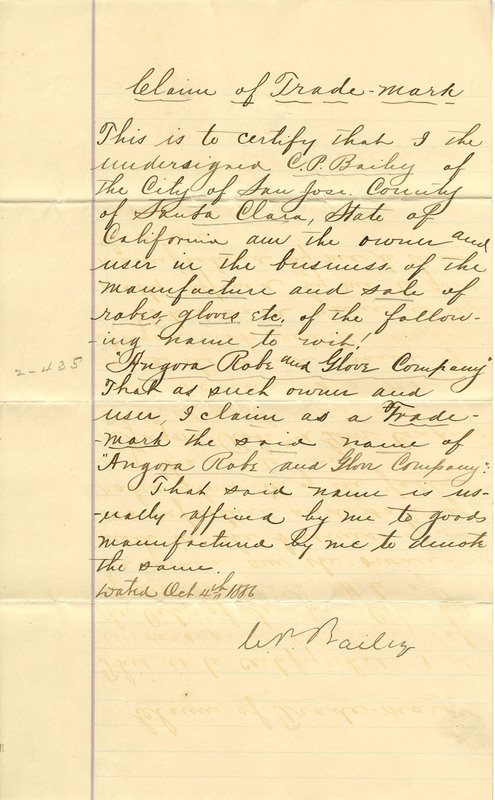 Claim of Trade-mark
This is to certify that I the
undersigned C.P. Bailey of
the City of San Jose. County
of Santa Clara, State of
California am the owner and
user in the business of the
manufacture and sale of
robes, gloves etc. of the follow-
-ing name to wit!
"Angora Robe and Glove Company"
That as such owner and
user, I claim as a Trade-
-mark the said name of
"Angora Robe and Glove Company":
That said name is us-
-ually affixed by me to goods
manufactured by me to denote
the same.
Dated Oct 4th 1886
C.P. Bailey
2-435